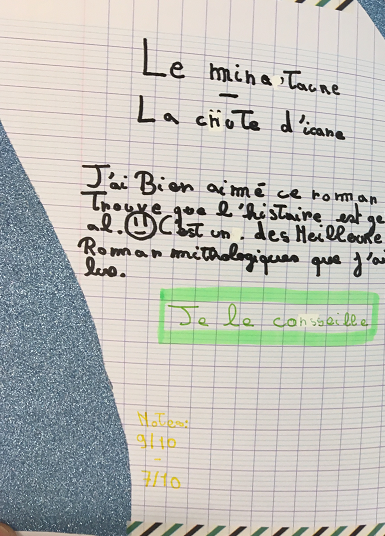 Le mina,Taure
–
La chute d'icare
J'ai Bien aimé ce roman
Trouve que l'histaire est ge
al. C'est un. des Meilleure
Roman mithologiques que j'ai
lue.
Je le consseille
Notes:
9/10
-
7/10